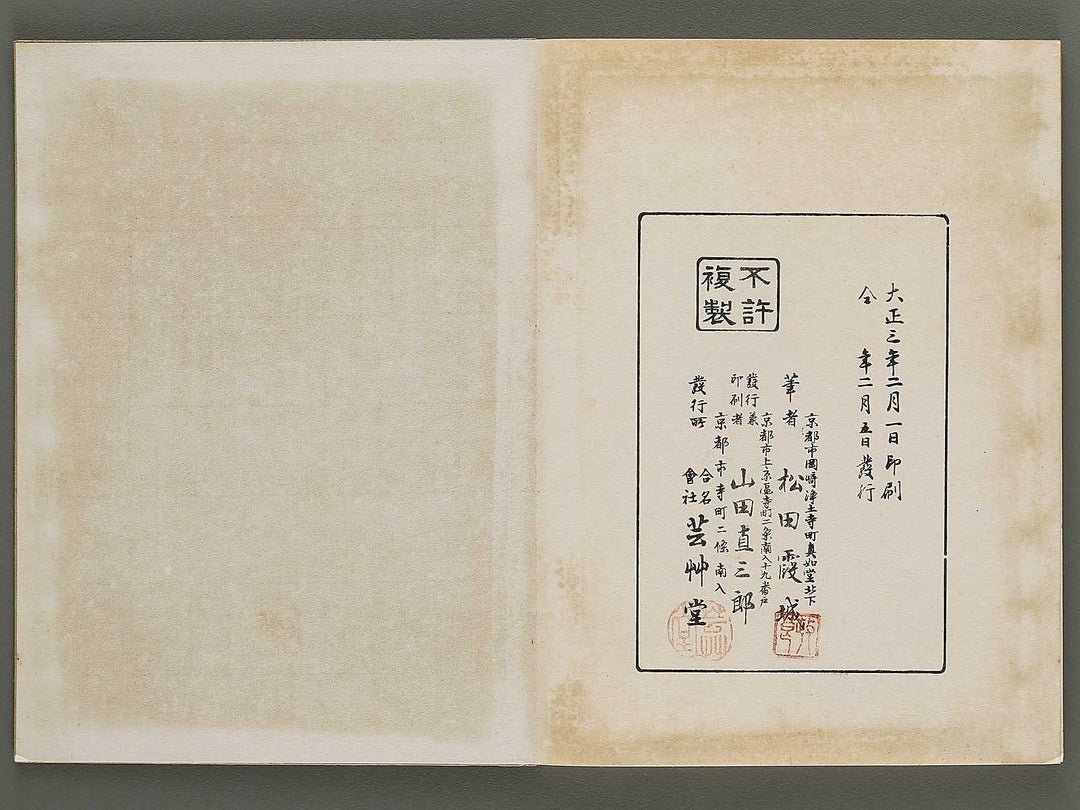 大正三年二月一日印刷
仝 年二月五日發行
不許
複製
京都市岡崎浄土寺町真如堂北下
筆者 松田霞城
京都市上京區寺町二条南入十九番戸
發行兼
印刷者 山田直三郎
京都市寺町二條南入
發行所 合名會社 芸艸堂